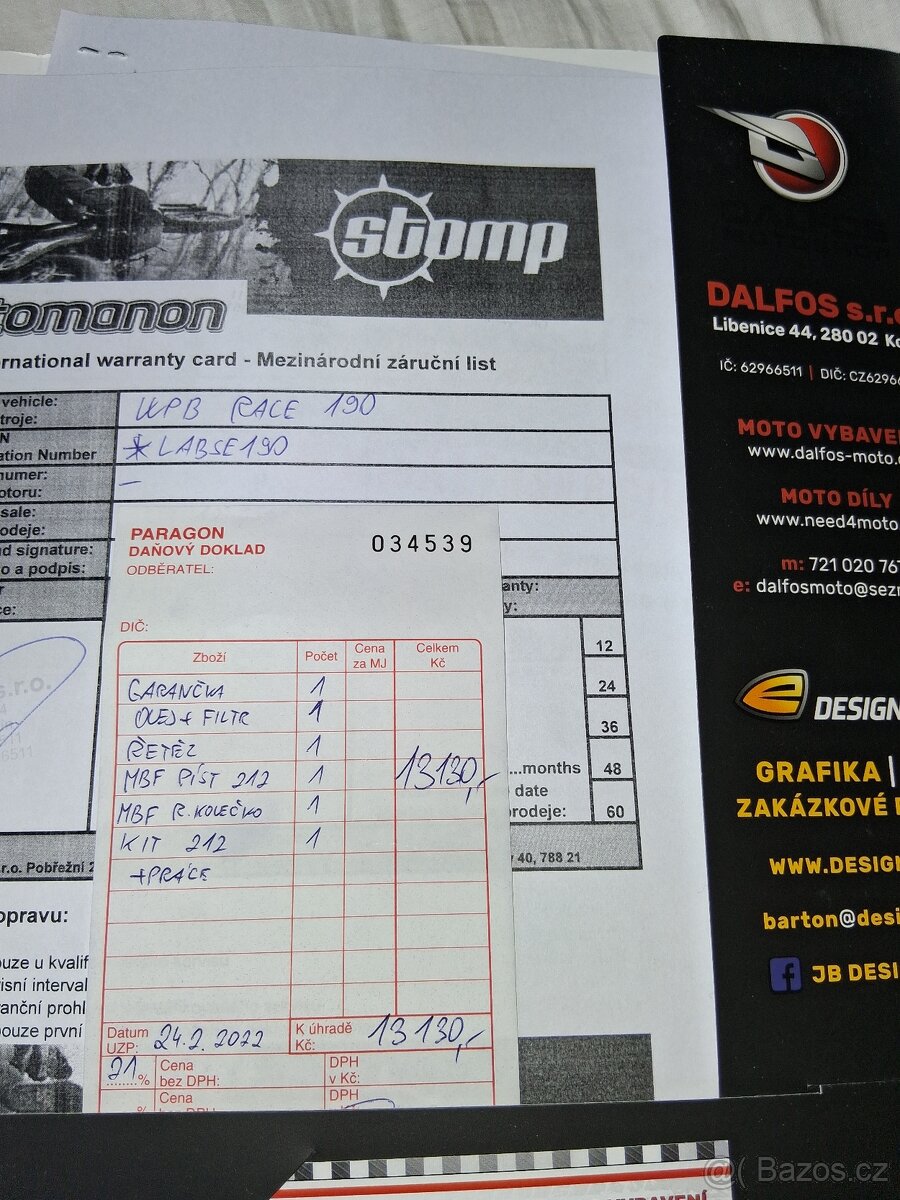 stomp
tomanon
ernational warranty card - Mezinárodní záruční list
vehicle:
troje:
WPB RACE 190
N
ation Number
*LABSE190
numer:
otoru:
-
sale:
odeje:
d signature:
o a podpis:
r
ce:
anty:
y:
12
24
36
...months
48
date
prodeje:
60
s.r.o.
.r.o. Pobřežní 2
y 40, 788 21
opravu:
ouze u kvalif
isní interval
anční prohl
ouze první
PARAGON
DAŇOVÝ DOKLAD
034539
ODBĚRATEL:
DIČ:
Zboží Počet Cena za MJ Celkem Kč
GARANČKA 1
OLEJ + FILTR 1
ŘETĚZ 1
MBF PÍST 212 1 13130,-
MBF R.KOLEČKO 1
KIT 212 1
+PRÁCE
Datum
UZP: 24.2.2022
K úhradě
Kč: 13130,-
21 % Cena
bez DPH:
DPH
v Kč:
% Cena
bez DPH:
DPH
DALFOS s.r.o
Libenice 44, 280 02 Ko
IČ: 62966511 | DIČ: CZ6296
MOTO VYBAVE
www.dalfos-moto.
MOTO DÍLY
www.need4moto
m: 721 020 767
e: dalfosmoto@sezn
DESIGN
GRAFIKA |
ZAKÁZKOVÉ
WWW.DESIGN
barton@desi
JB DESI
Bazos.cz